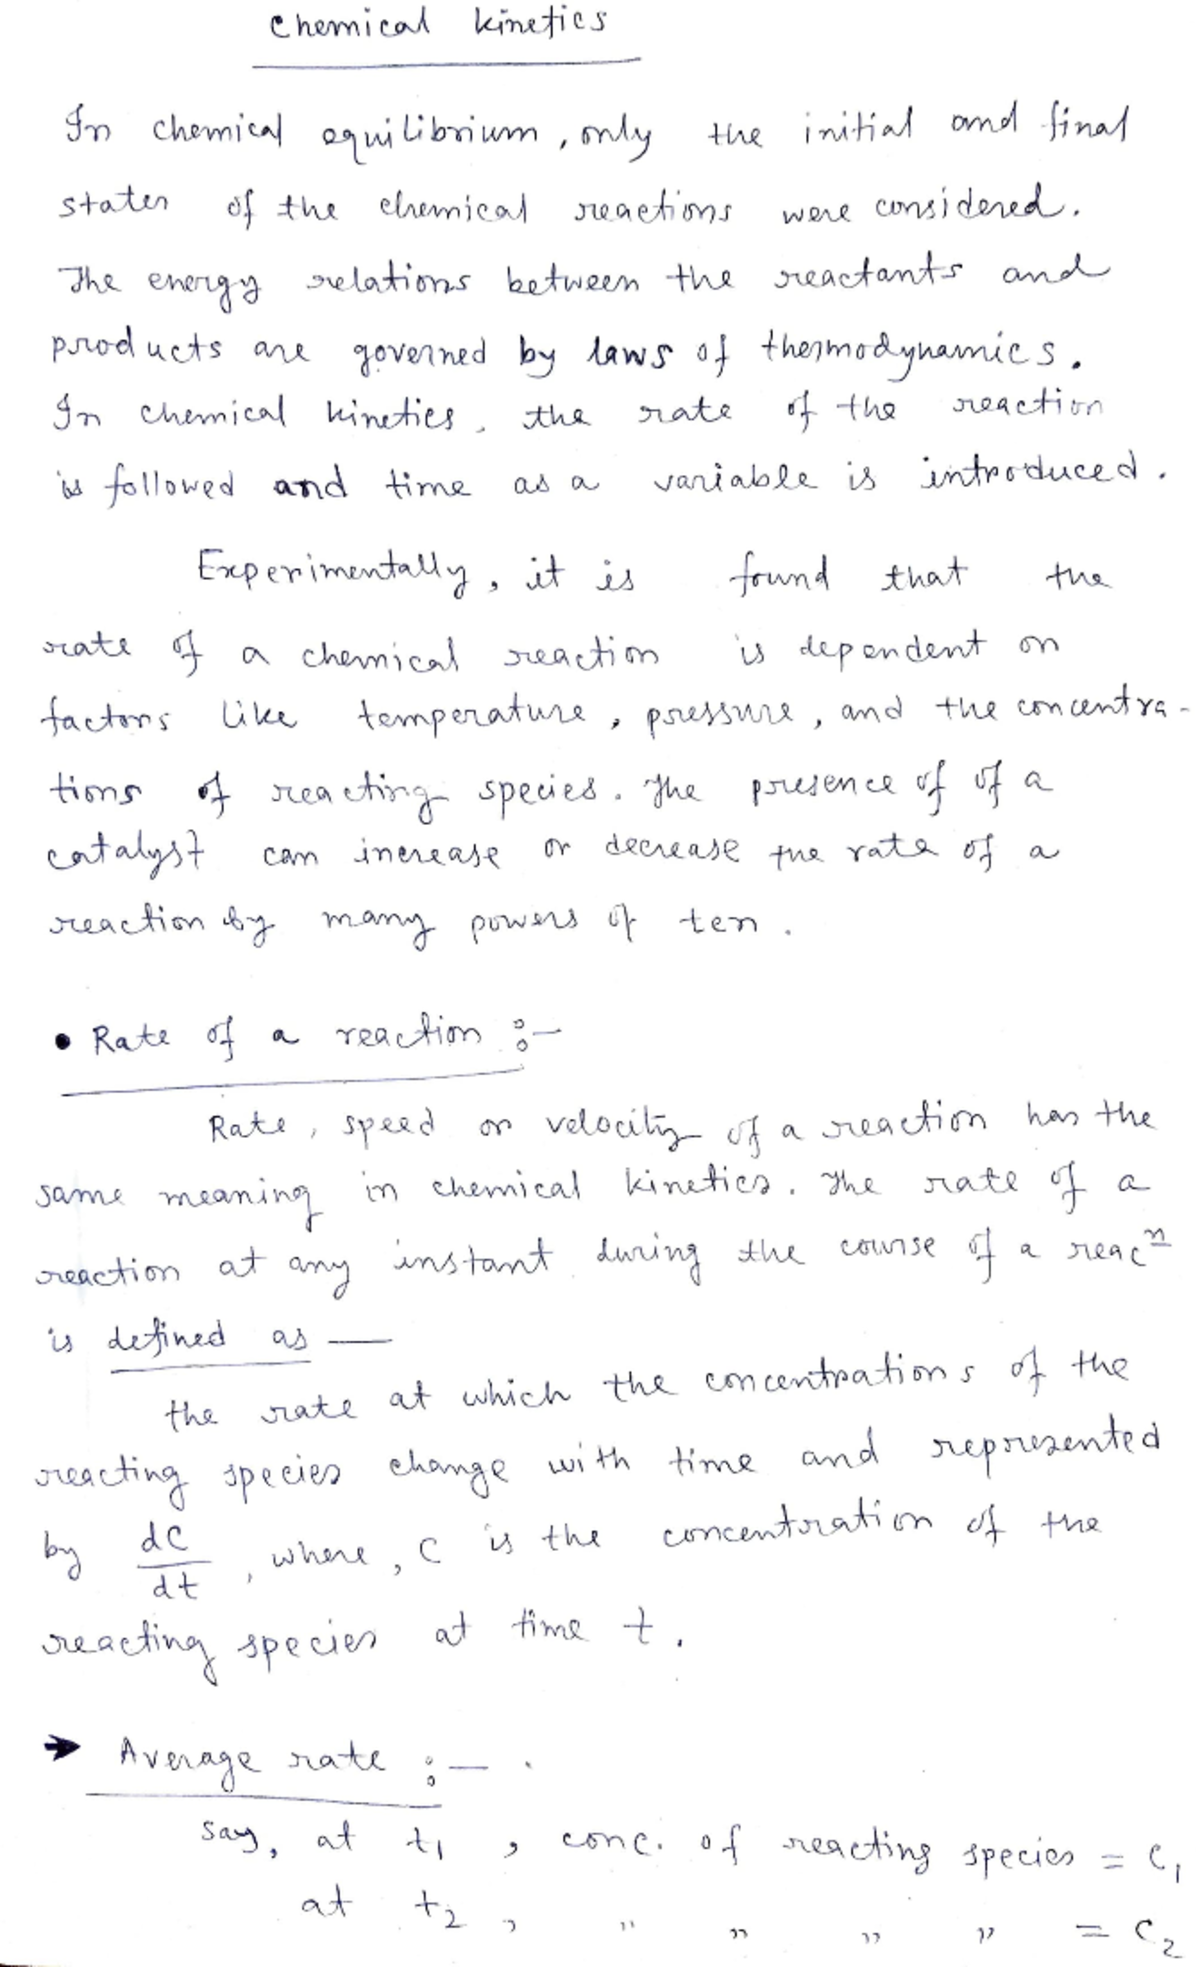 Chemical kinetics
In chemical equilibrium, only the initial and final
states of the chemical reactions were considered.
The energy relations between the reactants and
products are governed by laws of thermodynamics.
In chemical kinetics, the rate of the reaction
is followed and time as a variable is introduced.
Experimentally, it is found that the
rate of a chemical reaction is dependent on
factors like temperature, pressure, and the concentra-
tions of reacting species. The presence of of a
catalyst can increase or decrease the rate of a
reaction by many powers of ten.
• Rate of a reaction :-
Rate, speed or velocity of a reaction has the
same meaning in chemical kinetics. The rate of a
reaction at any instant during the course of a reacⁿ
is defined as —
the rate at which the concentrations of the
reacting species change with time and represented
by dC/dt, where, C is the concentration of the
reacting species at time t.
→ Average rate :-
say, at t₁, conc. of reacting species = C₁
at t₂, " " " " = C₂